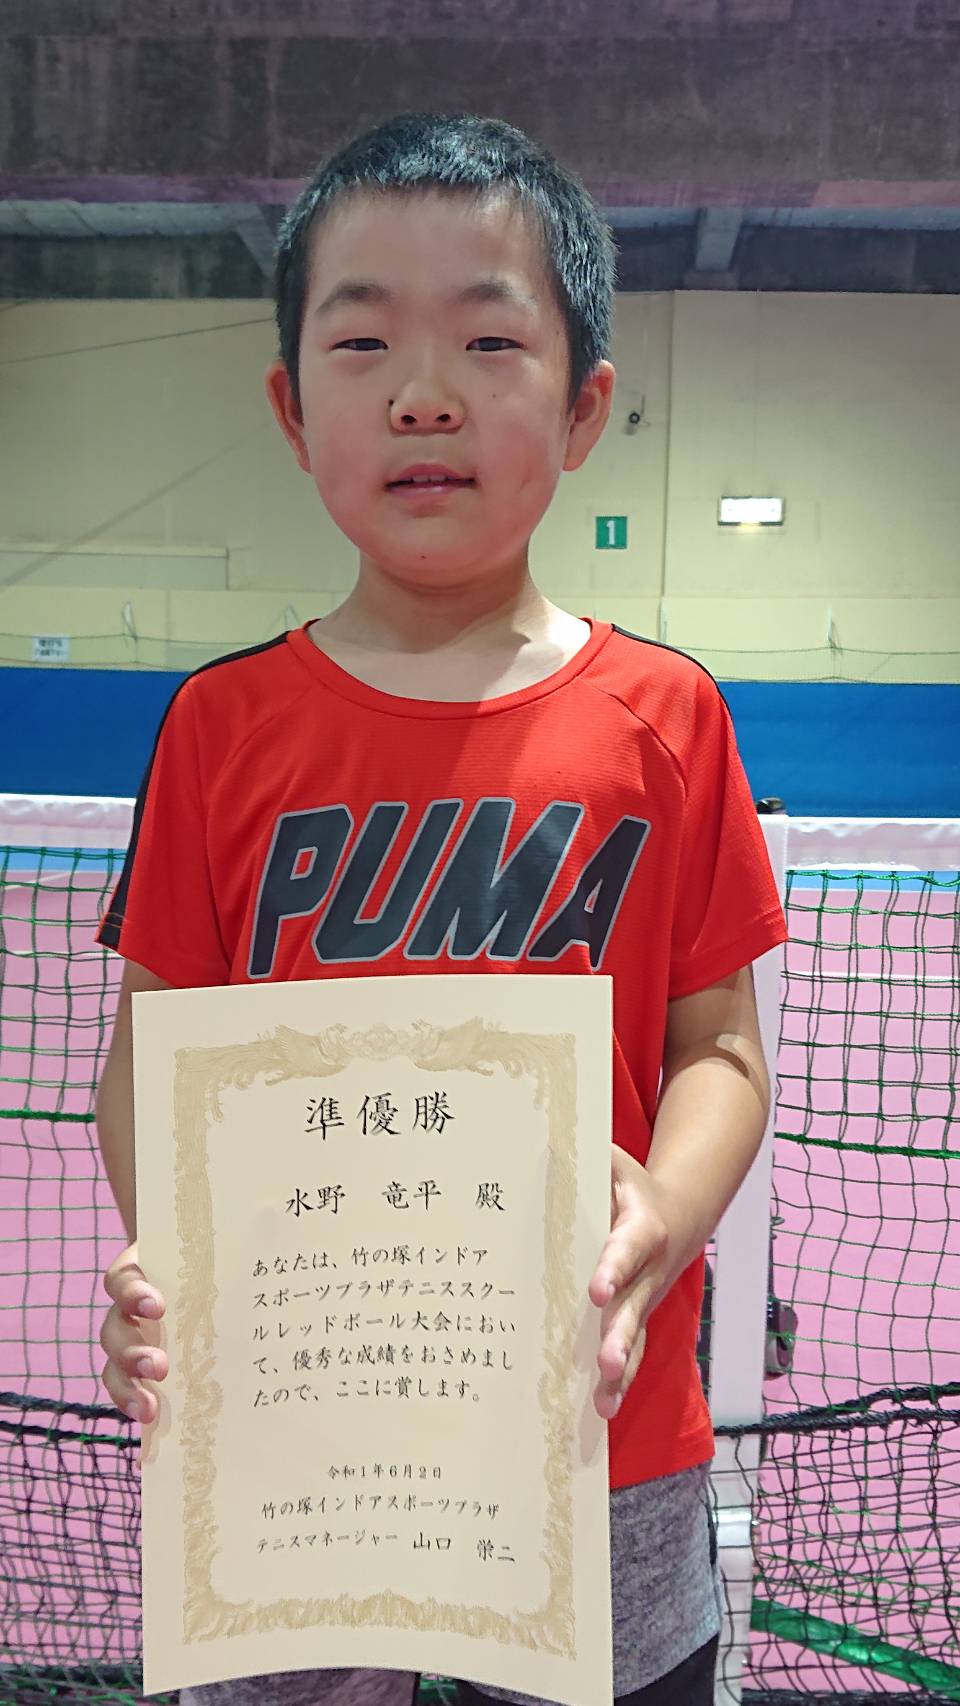 1
PUMA
準優勝
水野 竜平 殿
あなたは、竹の塚インドア
スポーツプラザテニススクー
ルレッドボール大会におい
て、優秀な成績をおさめまし
たので、ここに賞します。
令和1年6月2日
竹の塚インドアスポーツプラザ
テニスマネージャー 山口 栄二